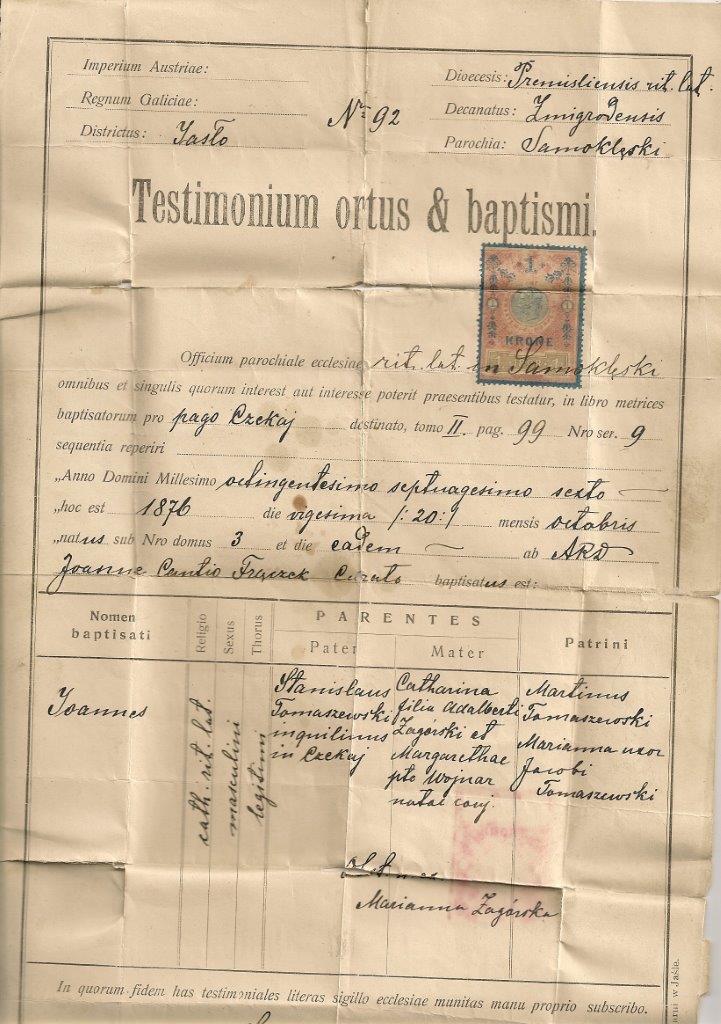 Imperium Austriae:
Regnum Galiciae:
Districtus: Jasło
Nº 92
Dioecesis: Premisliensis rit. lat.
Decanatus: Żmigrodensis
Parochia: Samoklęski
Testimonium ortus & baptismi.
1
1 1
KRONE
Officium parochiale ecclesiae rit. lat. in Samoklęski
omnibus et singulis quorum interest aut interesse poterit praesentibus testatur, in libro metrices
baptisatorum pro pago Czekaj destinato, tomo II. pag. 99 Nro ser. 9
sequentia reperiri
„Anno Domini Millesimo octingentesimo septuagesimo sexto
„hoc est 1876 die vigesima /:20:/ mensis octobris
„natus sub Nro domus 3 et die eadem ab ARD
Joanne Cantio Frączek Curato baptisatus est:
Nomen baptisati
Religio
Sexus
Thorus
PARENTES
Pater
Mater
Patrini
Joannes
cath. rit. lat.
masculini
legitimi
Stanislaus
Tomaszewski
inquilinus
in Czekaj
Catharina
filia Adalberti
Zagórski et
Margarethae
pto Wojnar
natae conj.
Martinus
Tomaszewski
Marianna uxor
Jacobi
Tomaszewski
Marianna Zagórska
In quorum fidem has testimoniales literas sigillo ecclesiae munitas manu proprio subscribo.
w Jaśle.